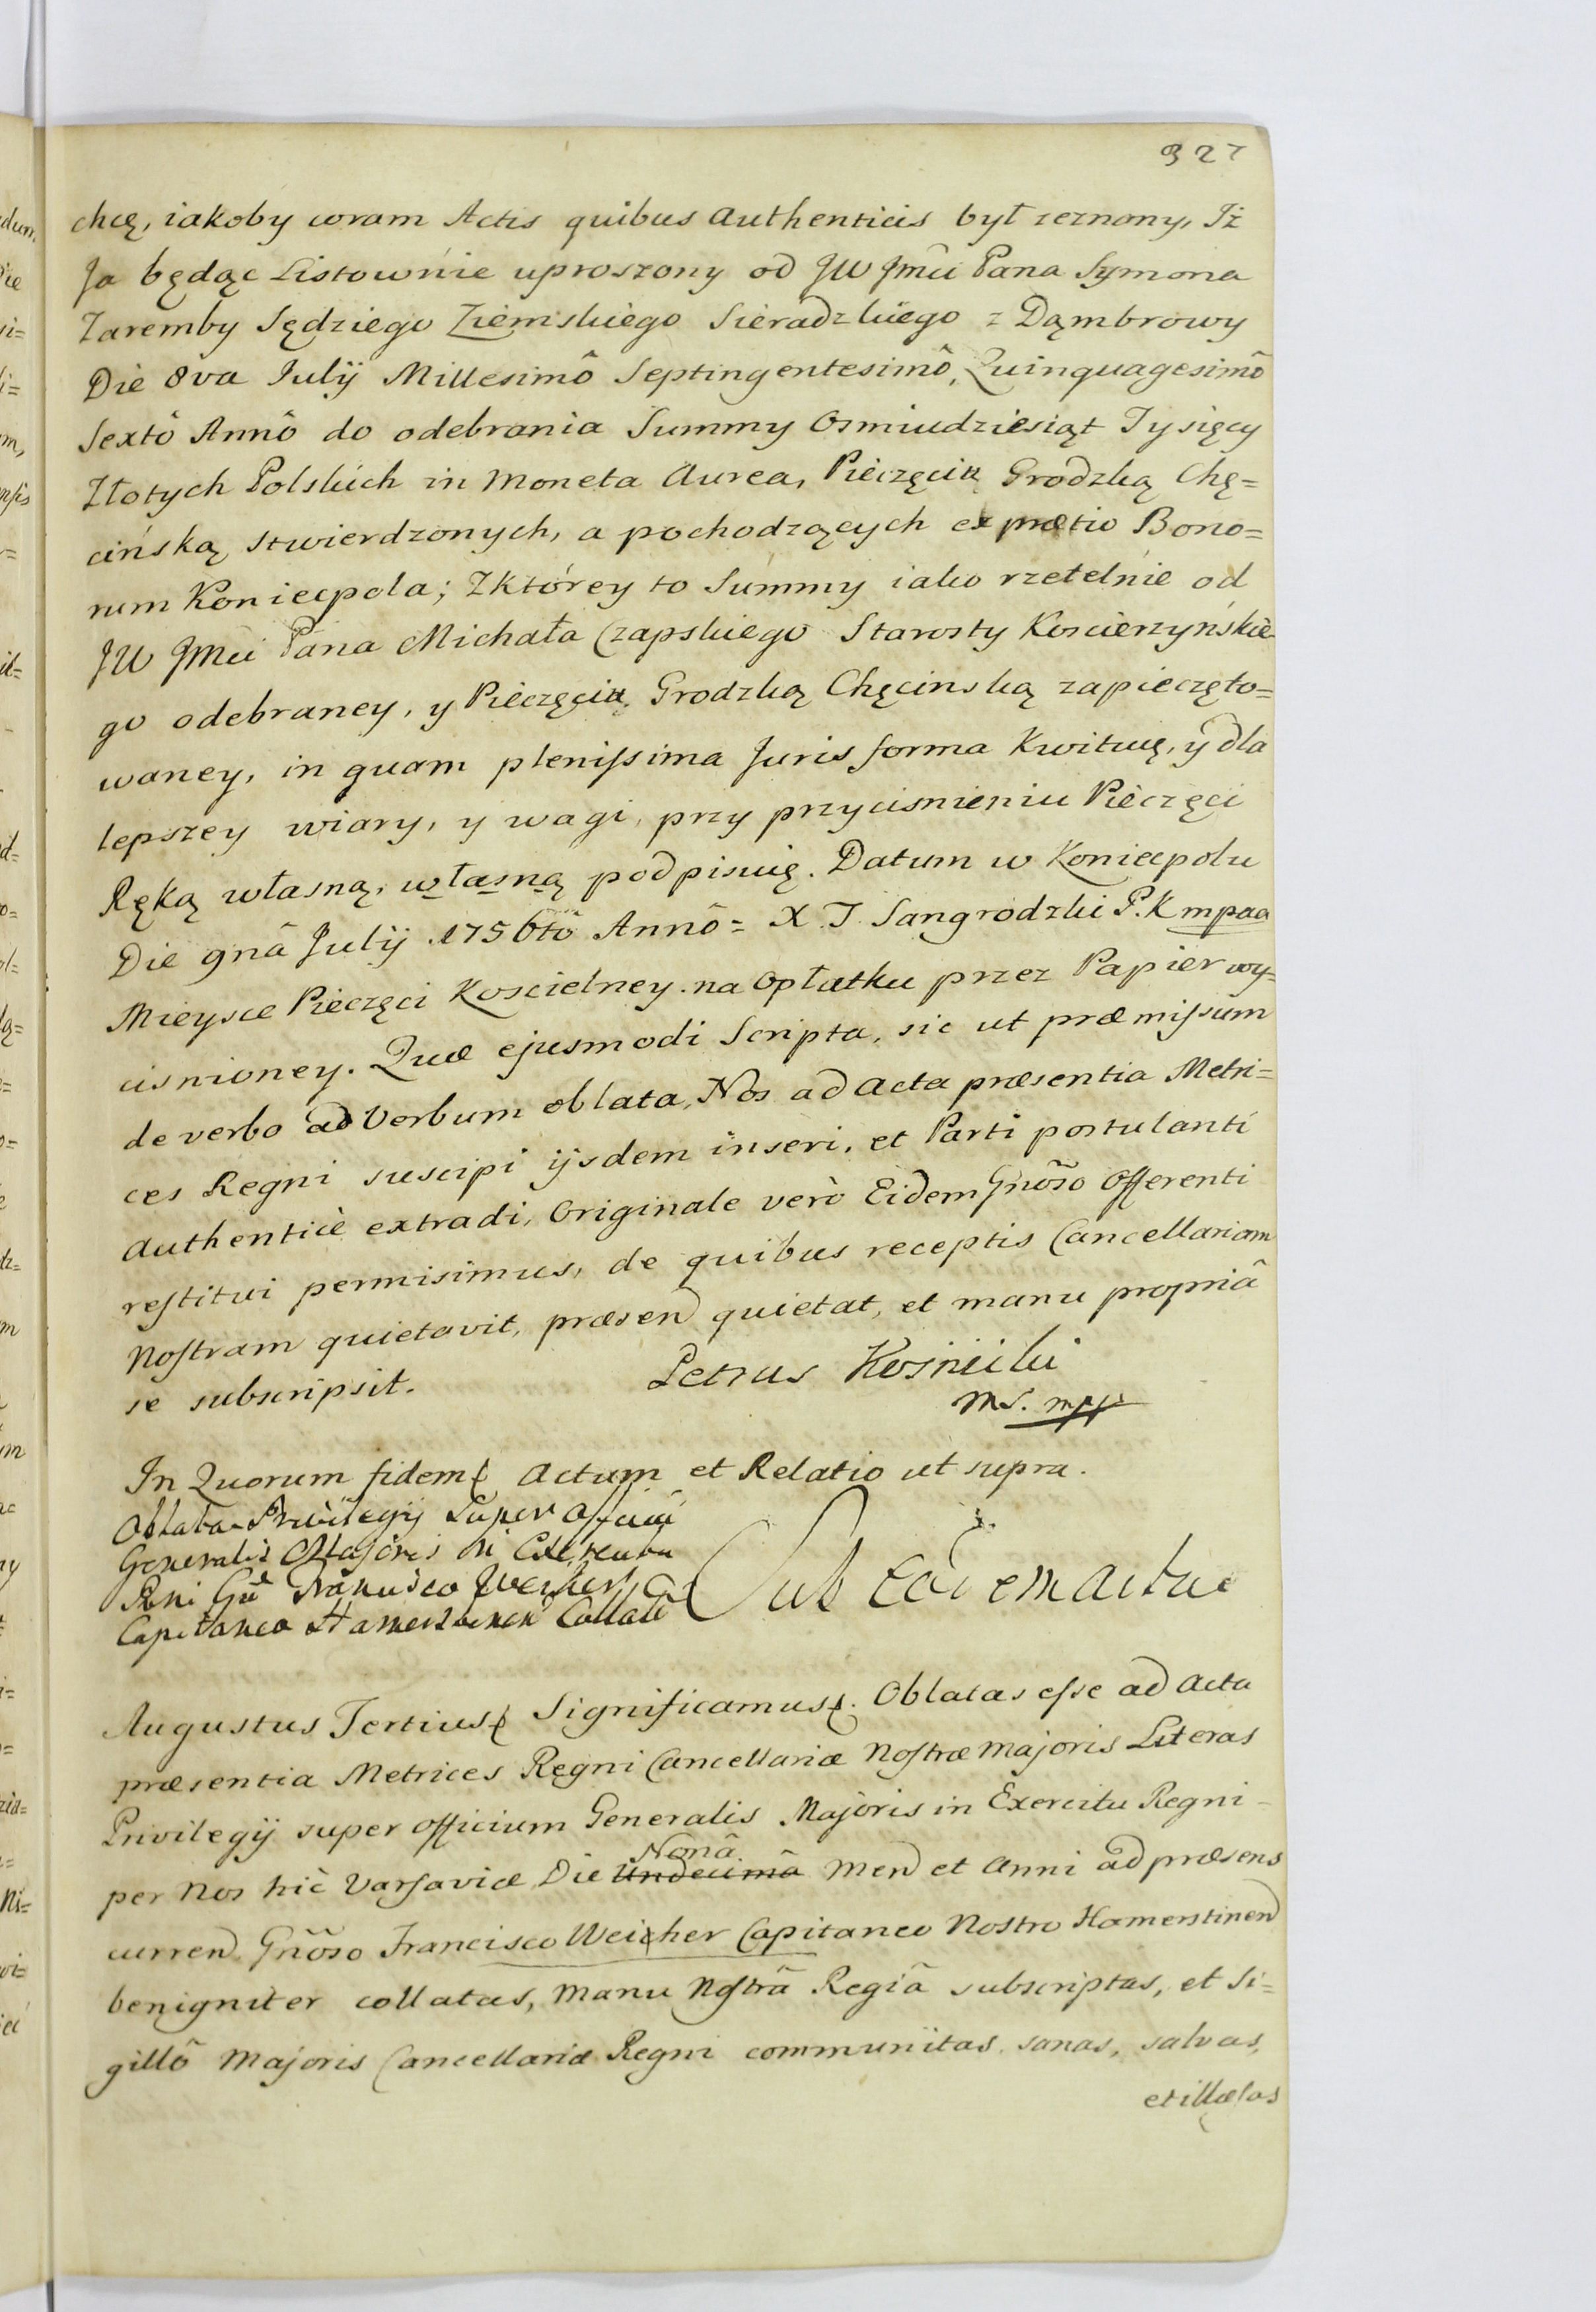 327
chcę, iakoby coram Actis quibus Authenticis był zeznany, Iż
Ja będąc Listownie uproszony od JW Jmci Pana Symona
Zaremby Sędziego Ziemskiego Sieradzkiego z Dąmbrowy
Die 8va Julij Millesimô Septingentesimô, Quinquagesimô
Sextô Annô do odebrania Summy Osmiudziesiąt Tysięcy
Złotych Polskich in Moneta Aurea, Pieczęcią Grodzką Chę=
cińską stwierdzonych, a pochodzących ex prætio Bono=
rum Koniecpola; Zktórey to Summy iako rzetelnie od
JW JMci Pana Michała Czapskiego Starosty Koscierzyńskie
go odebraney, y Pieczęcią Grodzką Chęcinską zapieczęto=
waney, in quam plenissima Juris forma Kwituię, y dla
lepszey wiary, y wagi, przy przycisnieniu Pieczęci
Ręką własną, własną podpisuię. Datum w Koniecpolu
Die 9nâ Julij 1756tô Annô = X. J. Sangrodzki P. K mpaa
Mieysce Pieczęci Koscielney na Opłatku przez Papier wy=
cisnioney. Quæ ejusmodi Scripta, sic ut præmissum
de verbo ad Verbum oblata, Nos ad Acta præsentia Metri=
ces Regni suscipi ijsdem inseri, et Parti postulanti
Authenticè extradi, Originale verò Eidem Gnõso Offerenti
restitui permisimus, de quibus receptis Cancellariam
Nostram quietavit, præsen quietat, et manu propriâ
se subscripsit.
Petrus Kosnicki
MS. mpp
In Quorum fidem Actum et Relatio ut supra.
Oblata Privilegij Super Officiũ
Generalis Majoris in Exercitu
Rni Gñ Francisco Weicher
Capitaneo Hamerstinen Collati
Sub eâdem actu
Augustus Tertius Significamus. Oblatas esse ad Acta
præsentia Metrices Regni Cancellariæ Nostræ Majoris Literas
Privilegij super Officium Generalis Majoris in Exercitu Regni
Nonâ
per Nos hic Varsaviæ Die Undecimâ Men et Anni ad præsens
curren Gñõso Francisco Weicher Capitaneo Nostro Hamerstinen
benigniter collatas, Manu Nostrâ Regiâ subscriptas, et Si=
gillô Majoris Cancellariæ Regni communitas sanas, salvas,
et illæsas